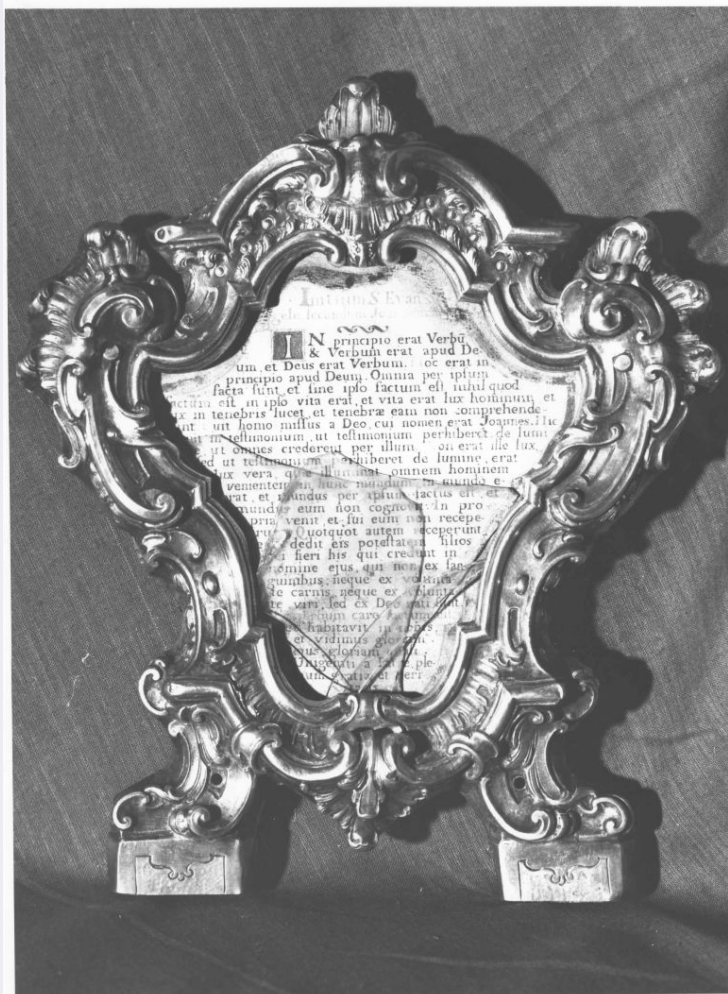 Initium S. Evan
gelii secundum Joan
IN principio erat Verbū
& Verbum erat apud De-
um, et Deus erat Verbum. oc erat in
principio apud Deum. Omnia per ipsum
facta sunt, et sine ipso factum est nihil quod
actum est in ipso vita erat, et vita erat lux hominum et
ux in tenebris lucet, et tenebræ eam non comprehende-
unt uit homo missus a Deo, cui nomen erat Joannes. Hic
in testimonium ut testimonium perhiberet de lumi
ut omnes crederent per illum on erat ille lux,
ed ut testimonium perhiberet de lumine, erat
lux vera, quæ illuminat omnem hominem
vementem in hunc mundum in mundo e-
rat, et mundus per ipsum factus est, et
mundus eum non cognovit In pro-
pria venit, et sui eum non recepe-
runt Quotquot autem receperunt
dedit eis potestatem filios
i fieri his qui credunt in
nomine ejus, qui non ex san-
guinibus, neque ex volunta
te carnis, neque ex volunta
te viri, sed ex Deo nati sunt
caro
habitavit in nobis
et vidimus gloriam
ejus gloriam
Unigeniti a Patre ple-
num gratiæ et veri